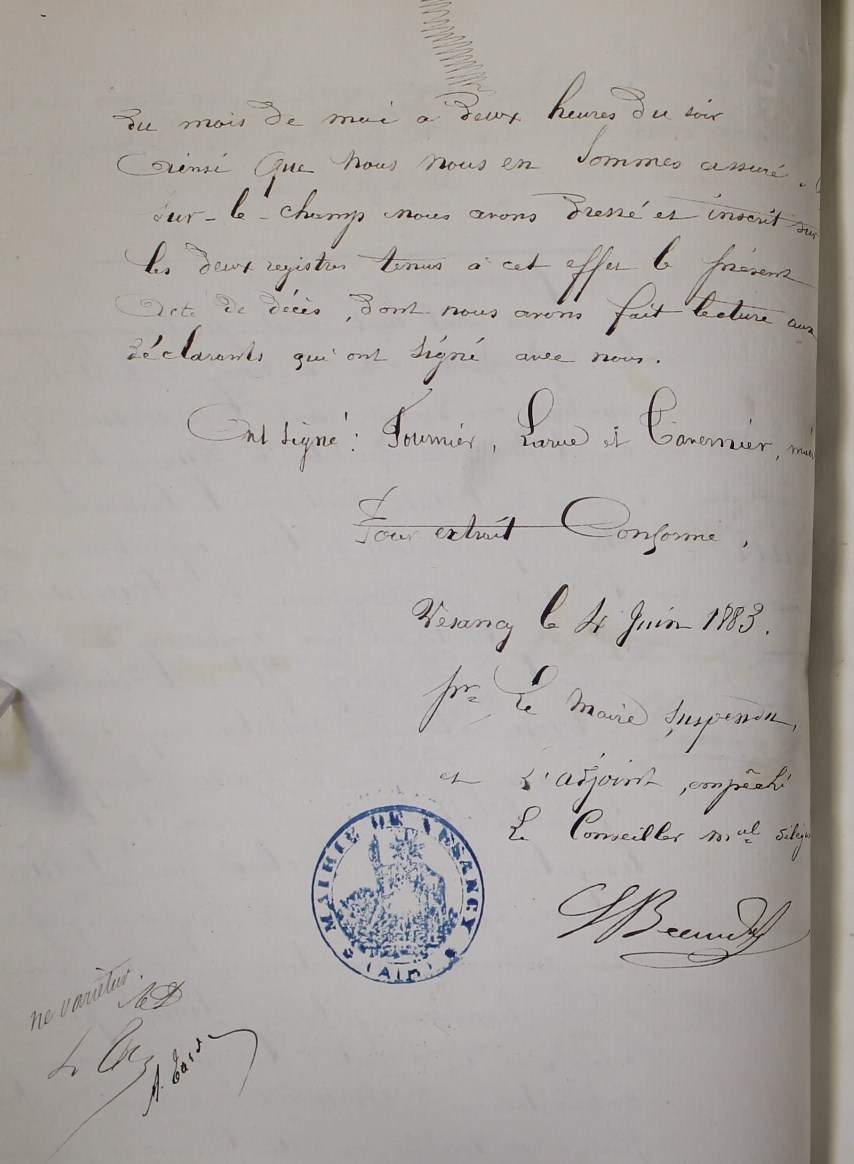 du mois de mai à deux heures du soir
Ainsi que nous nous en sommes assuré.
sur-le-champ nous avons dressé et inscrit sur
les deux registres tenus à cet effet le présent
Acte de décès, dont nous avons fait lecture aux
déclarants qui ont signé avec nous.
Ont signé: Fournier, Larue et Tavernier,
Pour extrait Conforme,
Vesancy le 4 Juin 1883.
pr Le Maire Suspendu,
et L'adjoint, empêché
Le Conseiller mal
MAIRIE DE VESANCY
(AIN)
ne varietur.